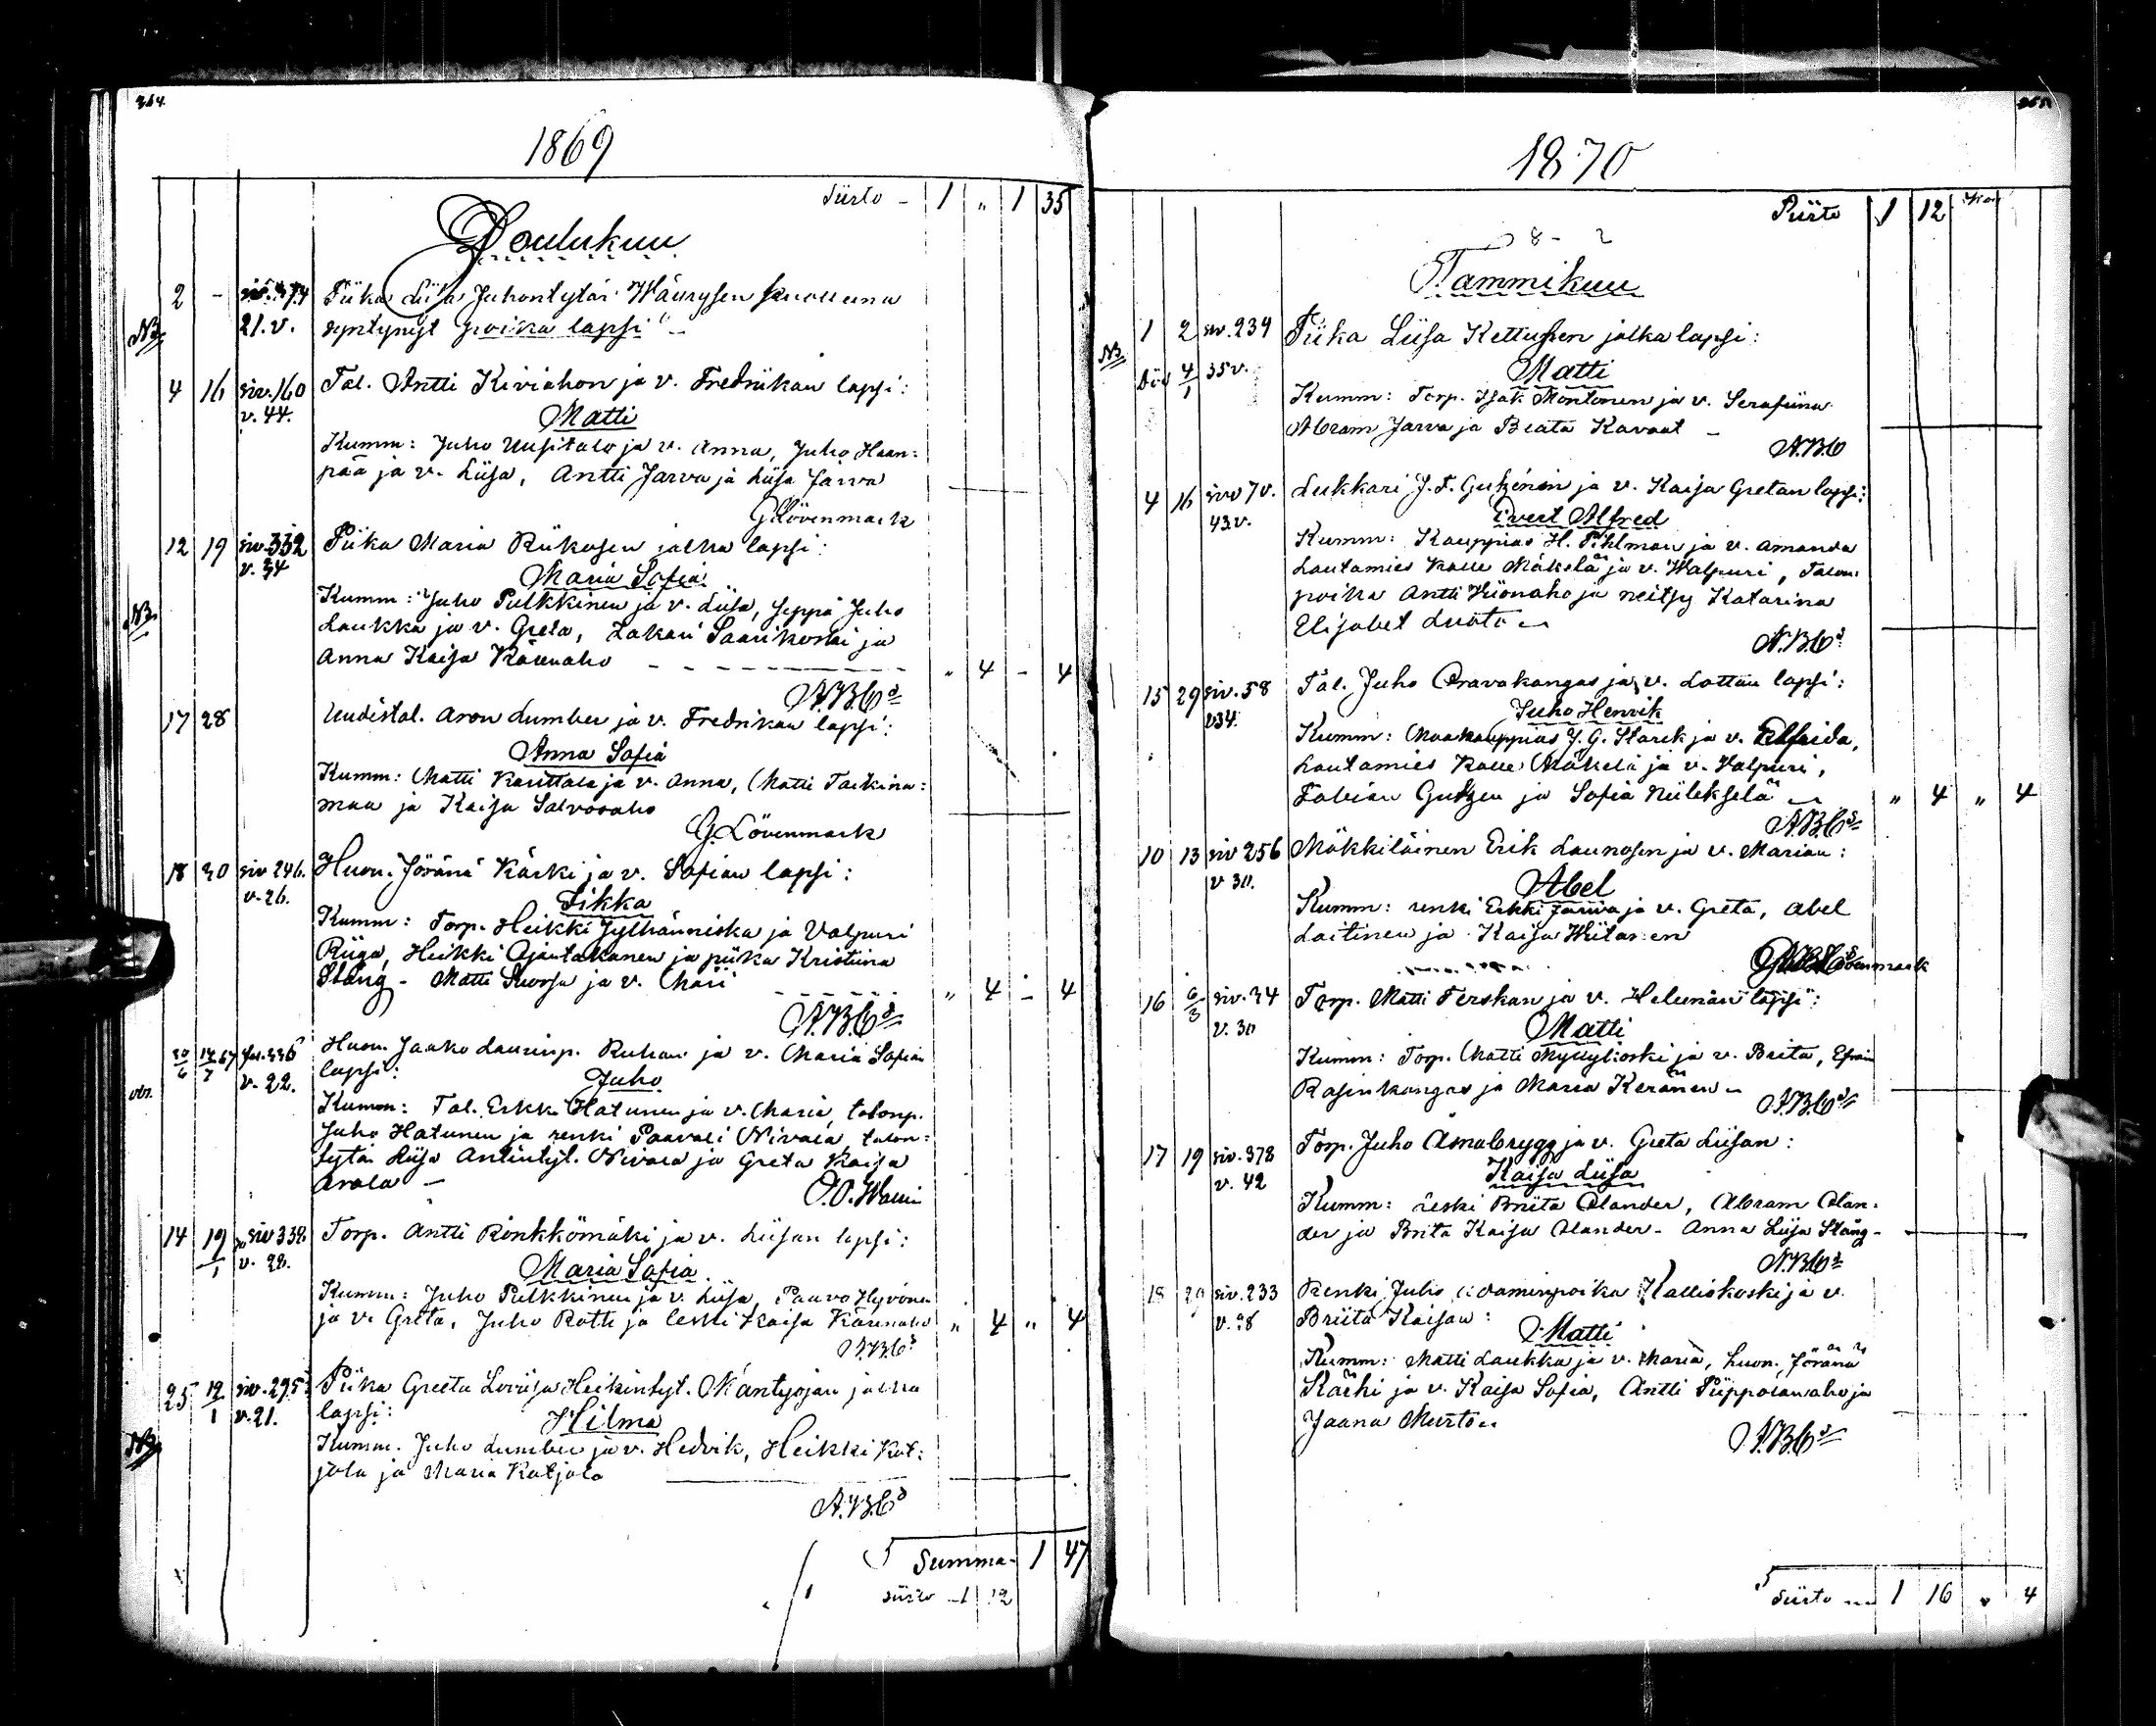 264
1869
Siirto - 1 " 1 35
Joulukuu
2 - siv. 474 Piika Liisa Juhontytär Wänrysen kuolleena
NB. 21. v. syntynyt poika lapsi" -
4 16 siv. 160 Tal. Antti Kiviahon ja v. Fredriikan lapsi:
v. 44. Matti
Kumm: Juho Uusitalo ja v. Anna, Juho Haan:
pää ja v. Liisa, Antti Jarva ja Liisa Jarva
G. Lövenmark
12 19 siv. 332 Piika Maria Riikosen jalka lapsi:
v. 34 Maria Sofia
NB. Kumm: Juho Pulkkinen ja v. Liisa, seppä Juho
Laukka ja v. Greta, Zakari Saarikoski ja
Anna Kaisa Kärenaho " 4 - 4
A.B.C:s
17 28 Uudistal. Aron Lumben ja v. Fredrikan lapsi:
Anna Sofia
Kumm: Matti Kanttala ja v. Anna, Matti Taikina:
maa ja Kaisa Salvosaho
G. Lövenmark
18 30 siv 246. Huon. Jöränä Kärki ja v. Sofian lapsi:
v. 26. Fikka
Kumm: Torp. Heikki Jylhänniska ja Valpuri
Riiga, Heikki Ajantakanen ja piika Kristiina
Stång - Matti Suorsa ja v. Mari " 4 - 4
A.B.C:s
30/6 14/7 67 fol. 336 Huon. Jaako Laurinp. Ruhan ja v. Maria Sofian
v. 22. lapsi: Juho
Kumm: Tal. Erkki Hatunen ja v. Maria, talonp.
Juho Hatunen ja renki Paavali Nivala, talon:
tytär Liisa Antintyt. Nivala ja Greta Kaisa
Arola -
O.O. Walli
14 19/1 siv 338. Torp. Antti Rönkkömäki ja v. Liisan lapsi:
v. 28. Maria Sofia
Kumm: Juho Pulkkinen ja v. Liisa, Paavo Hyvönen
ja v. Greta, Juho Rotti ja leski Kaisa Kärenaho " 4 " 4
A.B.C:s
25 12/1 siv. 295 Piika Greeta Lovisa Heikintyt. Mäntyojan jalka
v. 21. lapsi: Hilma
NB. Kumm. Juho Lumben ja v. Hedvik, Heikki Kat:
jola ja Maria Katjola
A.B.C:s
Summa - 1 47
siirto - 1 12
1870
Siirto 1 12
Tammikuu
1 2 siv. 239 Piika Liisa Kettusen jalka lapsi:
NB. Död 4/1 35 v. Matti
Kumm: Torp. Isak Montonen ja v. Serafiina
Abram Jarva ja Beata Kavaat -
A.B.C
4 16 siv 70. Lukkari J. F. Gutzénin ja v. Kaisa Gretan lapsi:
43. v. Evert Alfred
Kumm: Kauppias H. Pihlman ja v. Amanda
Lautamies Kalle Mäkelä ja v. Walpuri, Talon:
poika Antti Hiionaho ja neitsy Katarina
Elisabet Luoto
A.B.C:s
15 29 siv. 58 Tal. Juho Oravakangas ja v. Lottan lapsi:
v 34. Juho Henrik
Kumm: Maakauppias J. G. Starck ja v. Elfrida,
Lautamies Kalle Mäkelä ja v. Valpuri,
Fabian Gutzen ja Sofia Niilekselä " 4 " 4
A.B.C:s
10 13 siv 256 Mökkiläinen Erik Launosen ja v. Marian:
v 30. Abel
Kumm: renki Erkki Jarva ja v. Greta, Abel
Laitinen ja Kaisa Wiitanen
16 6/3 siv. 34 Torp. Matti Terskan ja v. Heleenan lapsi:
v. 30 Matti
Kumm: Torp. Matti Myllykoski ja v. Brita, Efraim
Rasinkangas ja Maria Keränen
A.B.C:s
17 19 siv. 378 Torp. Juho Ämalbrygg ja v. Greta Liisan:
v. 42 Kaisa Liisa
Kumm: leski Briita Olander, Abram Olan:
der ja Brita Kaisa Olander - Anna Liisa Stång -
A.B.C:s
18 29 siv. 233 Renki Juho Adaminpoika Kalliokoski ja v.
v. 28 Briita Kaisan: Matti
Kumm: Matti Laukka ja v. Maria, huon. Jöränä
Kärki ja v. Kaisa Sofia, Antti Piippolanaho ja
Jaana Murto
A.B.C:s
Siirto 1 16 " 4